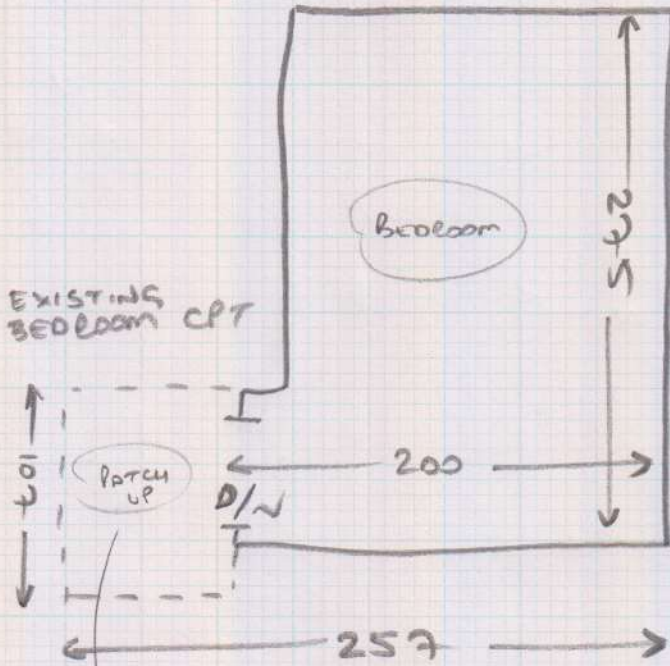 BEDROOM
275
EXISTING
BEDROOM CPT
107
PATCH
UP
D/N
200
257